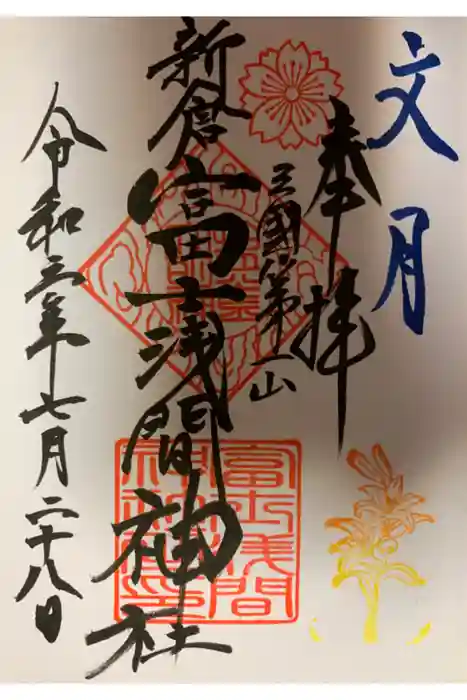 文月
奉拝
三國第一山
新倉富士浅間神社
令和三年七月二十八日
富士浅間
神社